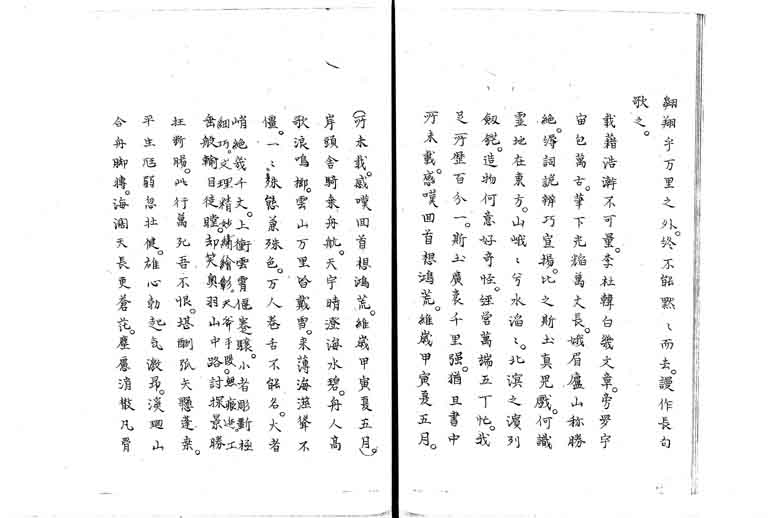 翱翔乎万里之外。終不能黙〻而去。謾作長句
歌之。
載藉浩澣不可量。李杜韓白幾文章。帝羅宇
宙包萬古。筆下光焰萬丈長。娥眉廬山称勝
絶。鐫詞説辨巧宣揚。比之斯土真児戯。何識
霊地在東方。山峨〻兮水滔〻。北溟之濱列
劔鋩。造物何意好奇怪。経営萬端五丁忙。我
足所歴百分一。斯土廣袤千里强。猶且書中
所未載。感嘆回首想鴻荒。維歳甲寅夏五月。
(所未載。感嘆回首想鴻荒。維歳甲寅夏五月。)
岸頭舎騎乗舟航。天宇晴澄海水碧。舟人高
歌浪鳴榔。雲山万里皆戴雪。来薄海湿聳不
僵。一〻殊態兼殊色。万人巻舌不能名。大者
峭絶幾千丈。上衝雲霄恇蹇驤。小者彫斲極
細巧。文理精妙繍繪彰。天斧手段無痕迹。工
輸目徒瞠。却笑奥羽山中路。討探景勝
狂断腸。此行萬死吾不恨。堪酬弧矢懸蓬桒。
平生尫弱忽壮健。雄心勃起気激昻。漢廻山
合舟脚轉。海濶天長更蒼茫。塵層消散凡胃